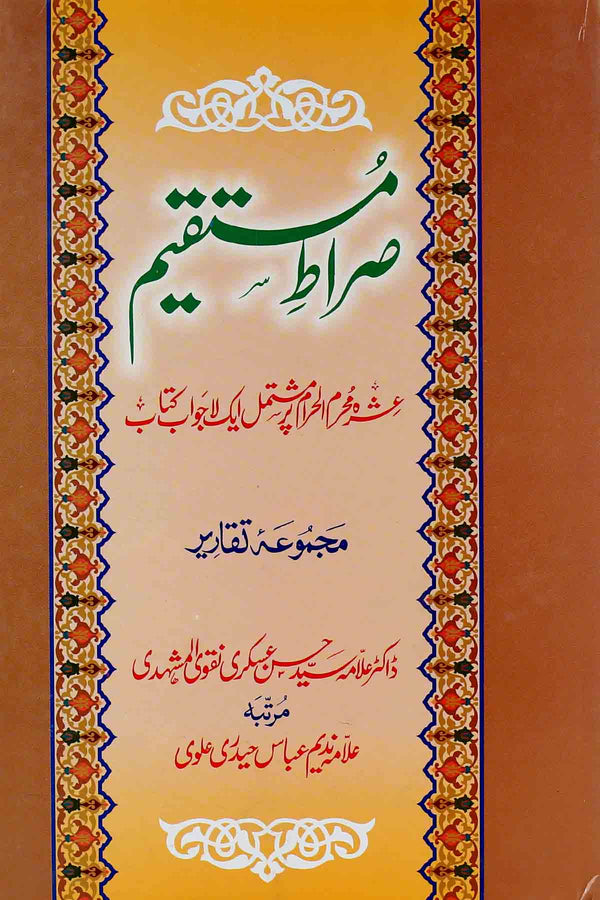 صراطِ مُستقیم
عشرہ مُحرم الحرام پر مشتمل ایک لاجواب کتاب
مَجمُوعَۂ تقاریر
ڈاکٹر علّامہ سیّد حسن عسکری نقوی المشہدی
مُرتّبہ
علّامہ ندیم عباس حیدری علوی